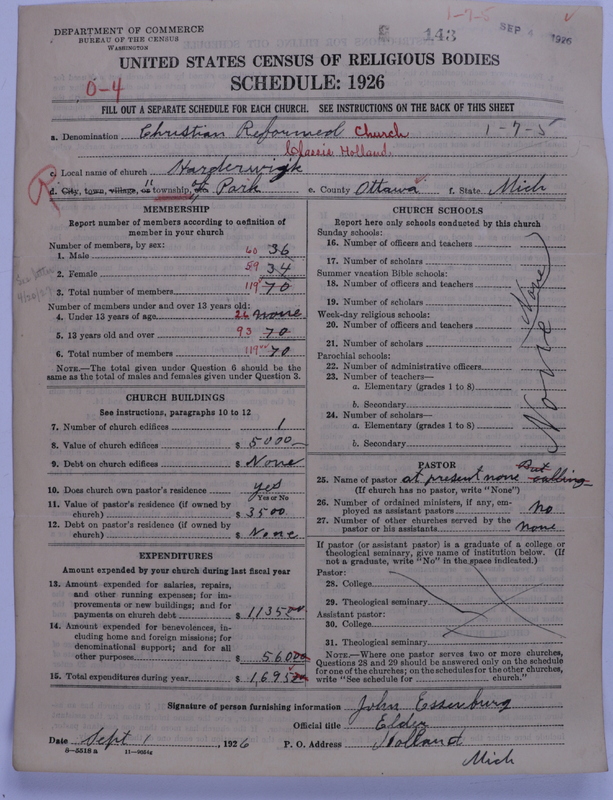 1-7-5
DEPARTMENT OF COMMERCE
BUREAU OF THE CENSUS
WASHINGTON
143
SEP 4 1926
UNITED STATES CENSUS OF RELIGIOUS BODIES
SCHEDULE: 1926
0-4
FILL OUT A SEPARATE SCHEDULE FOR EACH CHURCH. SEE INSTRUCTIONS ON THE BACK OF THIS SHEET
a. Denomination Christian Reformed Church 1-7-5
Classis Holland
c. Local name of church Harderwijk
d. City, town, village, or township of Park e. County Ottawa f. State Mich
MEMBERSHIP
Report number of members according to definition of
member in your church
Number of members, by sex:
1. Male 60 36
2. Female 59 34
3. Total number of members 119 70
Number of members under and over 13 years old:
4. Under 13 years of age 26 none
5. 13 years old and over 93 70
6. Total number of members 119 70
NOTE.—The total given under Question 6 should be
same as the total of males and females given under Question 3.
CHURCH BUILDINGS
See instructions, paragraphs 10 to 12
7. Number of church edifices 1
8. Value of church edifices $ 5000
9. Debt on church edifices $ None
10. Does church own pastor's residence yes
Yes or No
11. Value of pastor's residence (if owned by
church) $ 3500
12. Debt on pastor's residence (if owned by
church) $ None
EXPENDITURES
Amount expended by your church during last fiscal year
13. Amount expended for salaries, repairs,
and other running expenses; for im-
provements or new buildings; and for
payments on church debt $ 1,135 00
14. Amount expended for benevolences, in-
cluding home and foreign missions; for
denominational support; and for all
other purposes $ 560 00
15. Total expenditures during year $ 1,695 00
CHURCH SCHOOLS
Report here only schools conducted by this church
Sunday schools:
16. Number of officers and teachers
17. Number of scholars
Summer vacation Bible schools:
18. Number of officers and teachers
19. Number of scholars
Week-day religious schools:
20. Number of officers and teachers
21. Number of scholars
Parochial schools:
22. Number of administrative officers
23. Number of teachers—
a. Elementary (grades 1 to 8)
b. Secondary
24. Number of scholars—
a. Elementary (grades 1 to 8)
b. Secondary
None
None
PASTOR
25. Name of pastor at present none But calling
(If church has no pastor, write "None")
26. Number of ordained ministers, if any, em-
ployed as assistant pastors No
27. Number of other churches served by the
pastor or his assistants None
If pastor (or assistant pastor) is a graduate of a college or
theological seminary, give name of institution below. (If
not a graduate, write "No" in the space indicated.)
Pastor:
28. College
29. Theological seminary
Assistant pastor:
30. College
31. Theological seminary
NOTE.—Where one pastor serves two or more churches,
Questions 28 and 29 should be answered only on the schedule
for one of the churches; on the schedules for the other churches,
write "See schedule for church."
Signature of person furnishing information John Essenburg
Official title Elder
Date Sept 1, 1926 P. O. Address Holland
Mich
8-5518 a 11-9054a